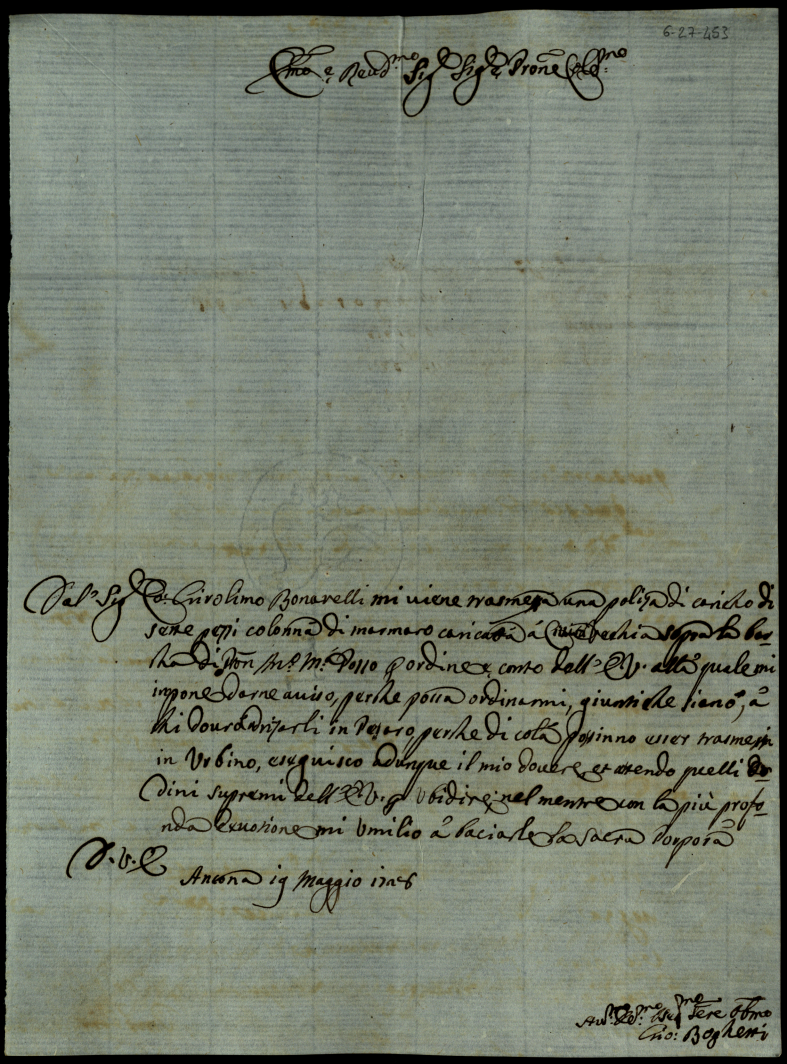 6-27-453
Em̃o e Reud.mo Sig.r Sig.r Prone Col.mo
Dal Sig.r Co: Girolimo Bonarelli mi viene trasmessa una polizza di caricho di
sette pezzi colonna di marmaro caricatta á Civita vechia sopra la bar-
cha di ordine e conto dell' E.V. alla quale mi
impone darne aviso, perche possa ordinarmi, giunti che siano, á
chi dovrò adrizarli in Pesaro, perche di colá possinno esser trasmessi
in Urbino, eseguisco adunque il mio dovere, et attendo quelli or-
dini supremi dell' E.V. p Ubidire, nel mentre con la più profo-
nda devozione mi Umilio á baciarle la Sacra Porpora
D. V. E.
Ancona 19 Maggio 1726
Sere Obmo
Gio: Boghetti